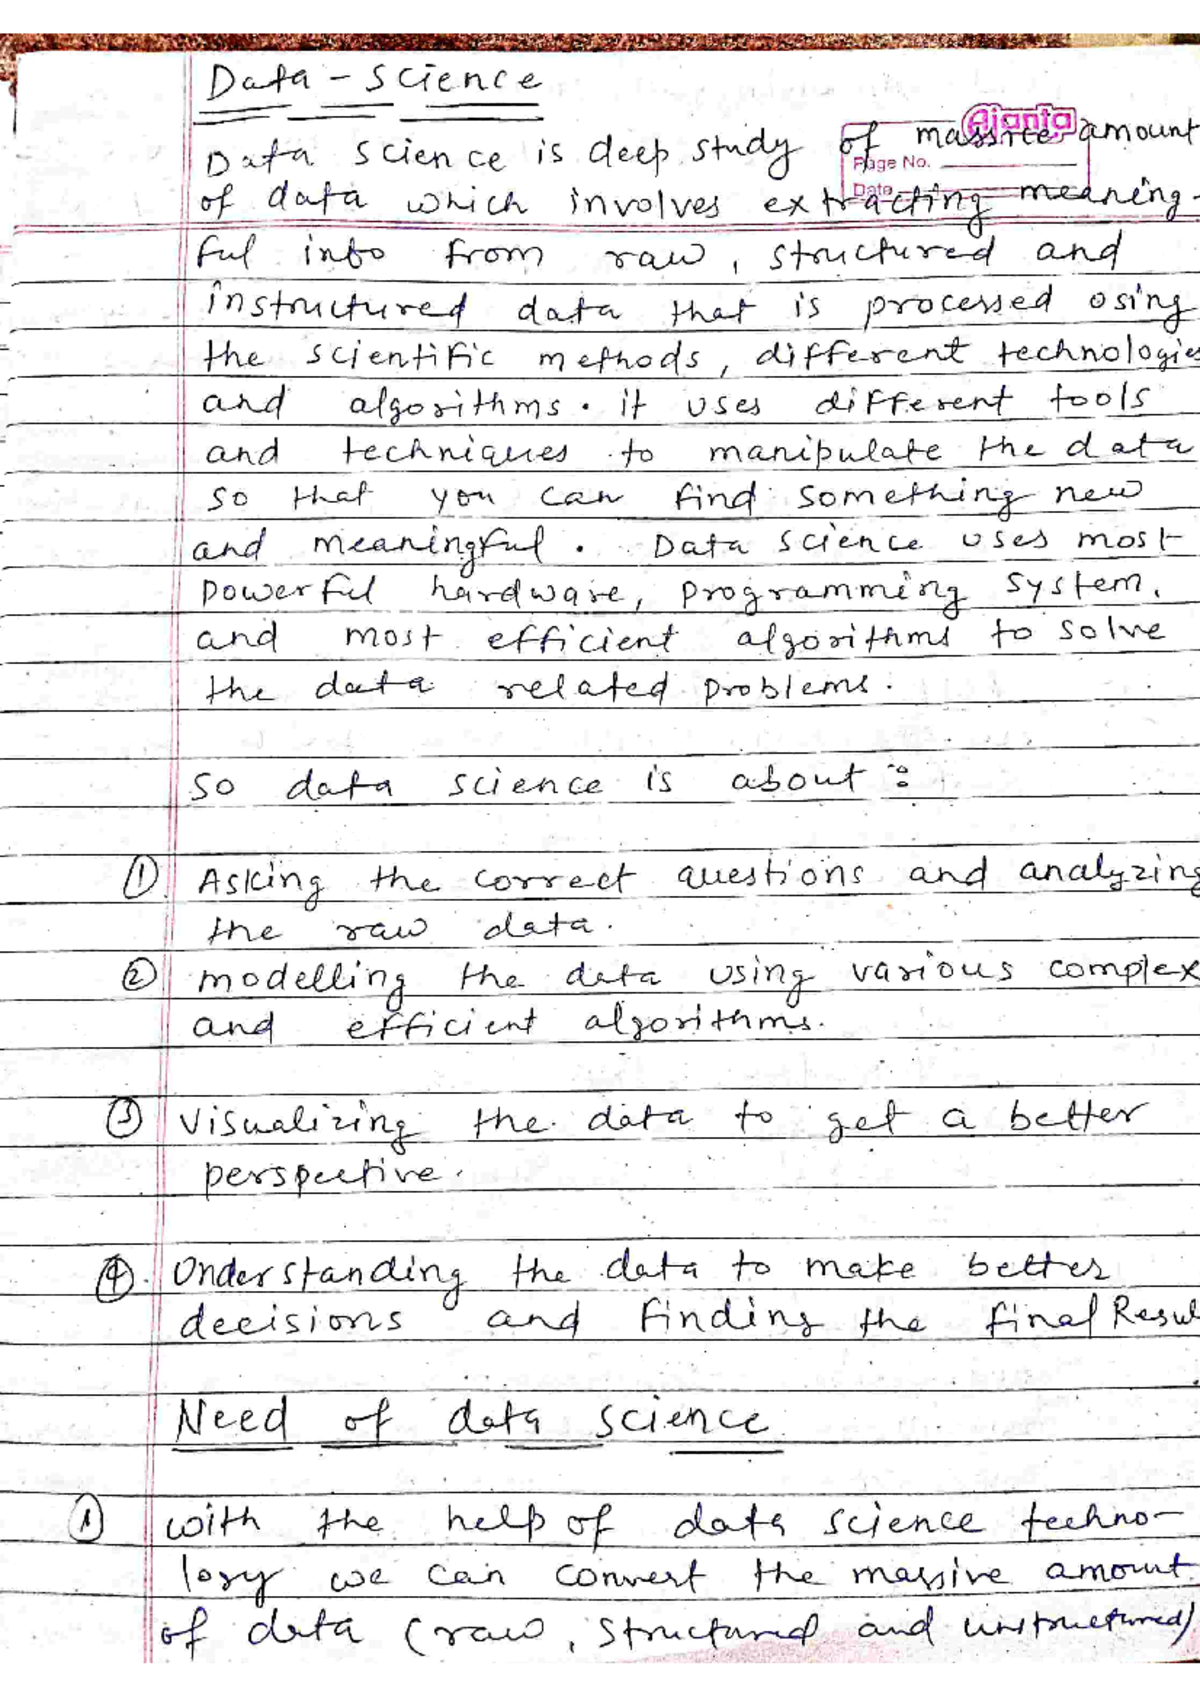 Data - Science
Ajanta
Data science is deep study of massive amount
Page No.
Date
of data which involves extracting meaning-
ful info from raw, structured and
instructured data that is processed using
the scientific methods, different technologies
and algorithms. it uses different tools
and techniques to manipulate the data
so that you can find something new
and meaningful. Data science uses most
powerful hardware, programming system,
and most efficient algorithms to solve
the data related problems.
So data science is about :
① Asking the correct questions and analyzing
the raw data.
② modelling the data using various complex
and efficient algorithms.
③ Visualizing the data to get a better
perspective.
④. Understanding the data to make better
decisions and finding the final Resul
Need of data science
① with the help of data science techno-
logy we can convert the massive amount
of data (raw, structured and unstructured)